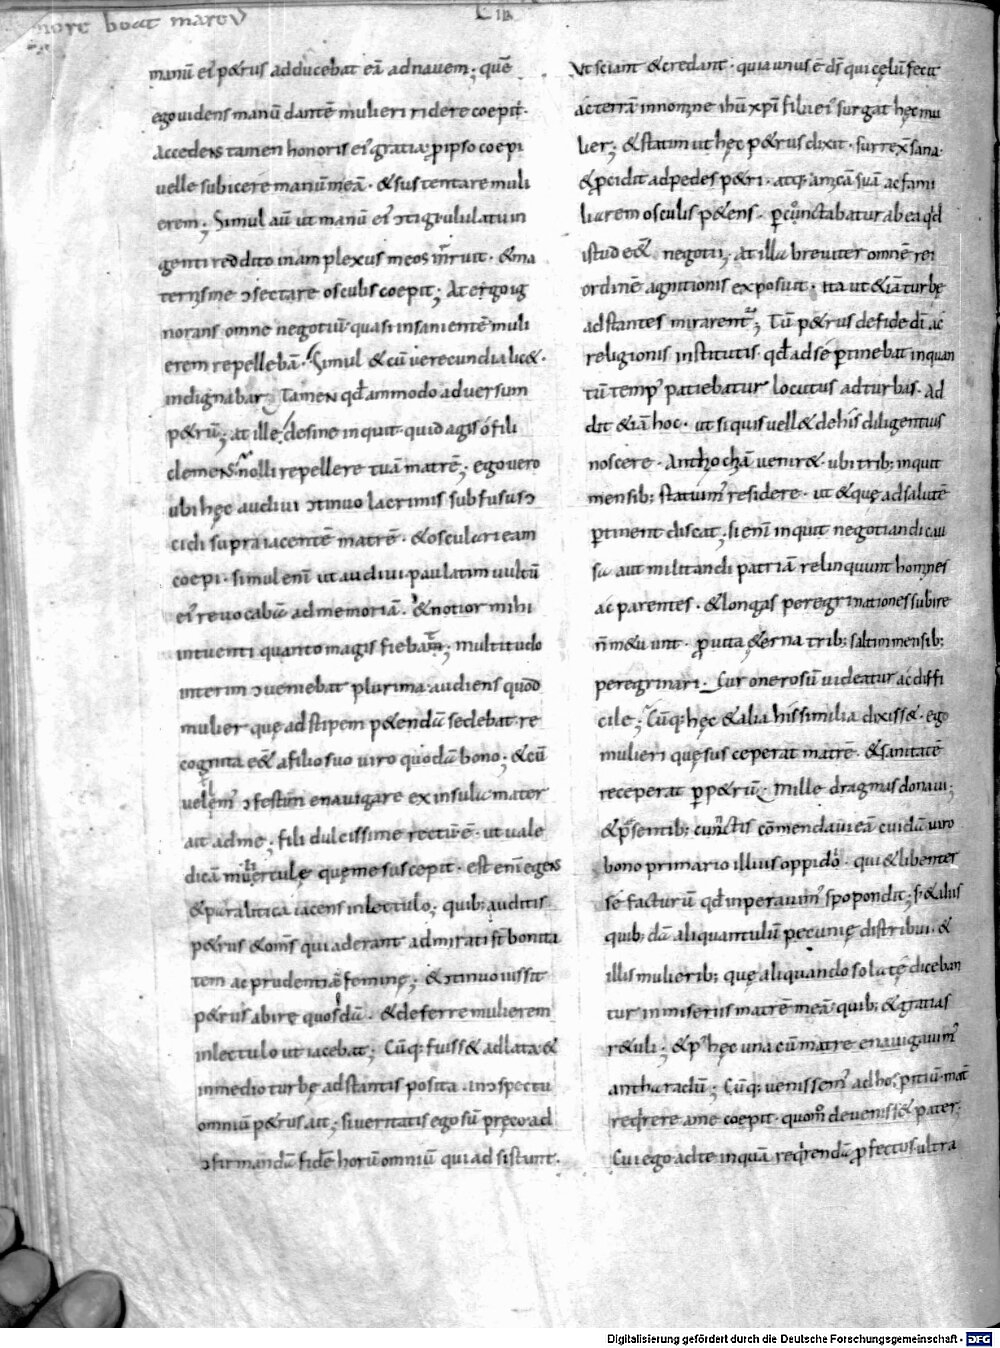 more boat mare
manū ei᾽ p&rus adducebat eā ad nauem; quē
ego uidens manū dantē mulieri ridere coepit·
Accedens tamen honoris ei᾽ gratia p ipso coepi
uelle subicere manū meā· & sustentare muli
erem; Simul aū ut manū ei᾽ ɔtigi ululatu in
genti reddito in amplexus meos inruit· & ma
ternisme ɔsectare osculis coepit; At ergo ig
norans omne negotiū· quasi insanientē muli
erem repellebā· Simul & cū uerecundia lic&·
indignabar; Tamen qđ ammodo aduersum
p&rū; at ille; desine inquit· quid agis ó fili
clemens· nolli repellere tuā matrē; ego uero
ubi hęc audiui ɔtinuo lacrimis subfusus ɔ
cidi supra iacentē matrē· & osculari eam
coepi· simul enī ut audiui paulatim uultū
ei᾽ reuocabā ad memoriā· & notior mihi
intuenti quanto magis fiebat; multitudo
interim ɔueniebat plurima· audiens quod
mulier quę ad stipem p&endā sedebat re
cognita eēt a filio suo uiro quodā bono; & cū
uelem᾽ ɔfestim enauigare ex insula mater
ait ad me; fili dulcissime rectū ē· ut uale
dicā mulierculę quę me suscepit· est enī egens
& paralitica iacens in lectulo; quib; auditis
p&rus & oms qui aderant admirati st̄ bonita
tem ac prudentiā feminę; & ɔtinuo iussit
p&rus abire quosdā· & deferre mulierem
in lectulo ut iacebat; Cūq; fuiss& adlata &
in medio turbę adstantis posita· in ɔspectu
omniū p&rus ait; si ueritatis ego sū pręco ad
ɔfirmandā fidē horū omniū qui adsistunt·
Ut sciant & credant· quia unus ē dš qui cęlū fecit
ac terrā in nomine ihū xp̄i filii ei᾽ surgat hęc mu
lier; & statim ut hęc p&rus dixit· surrex̄ sana·
& p̄cidit ad pedes p&ri· atq; amicā suā ac fami
liarem osculis p&ens· p̱cunctabatur ab ea qđ
istud eēt negotii; at illa breuiter omnē rei
ordinē agnitionis exposuit· ita ut &iā turbę
adstantes mirarent᾽; Tū p&rus de fide dī ac
religionis institutis· qđ ad se p̱tinebat in quan
tū temp᾽ patiebatur locutus ad turbas· ad
dit &iā hoc· ut si quis uell& de his diligentius
noscere· Anthiochiā uenir&· ubi trib; inquit
mensib; statuim᾽ residere· ut & quę ad salutē
p̱tinent discat; si enī inquit negotiandi cau
sa aut militandi patriā relinquunt homines
ac parentes· & longas peregrinationes subire
n̄ m&uunt· p uita &erna trib; saltim mensib;
peregrinari· Cur onerosū uideatur ac diffi
cile; Cūq; hęc & alia his similia dixiss&· ego
mulieri quę susceperat matrē· & sanitatē
receperat p̱ p&rū; mille dragmas donaui;
& p̄sentib; cunctis cōmendaui eā cuidā uiro
bono primario illius oppidi· qui & libenter
sé facturū qđ inperauim᾽ spopondit; s; & aliis
quib; dā aliquantulū pecunię distribui· &
illis mulierib; quę aliquando solatę diceban
tur in miseriis matrē meā· quib; & gratias
r&uli; & p᾽ hęc una cū matre enauigauim᾽
antharadū; Cūq; uenissem᾽ ad hospitiū· mat̄
reqrere a me coepit· quom̄ deueniss& pater·
Cui ego ad te inquā reqrendā pfectus· ultra
Digitalisierung gefördert durch die Deutsche Forschungsgemeinschaft · DFG